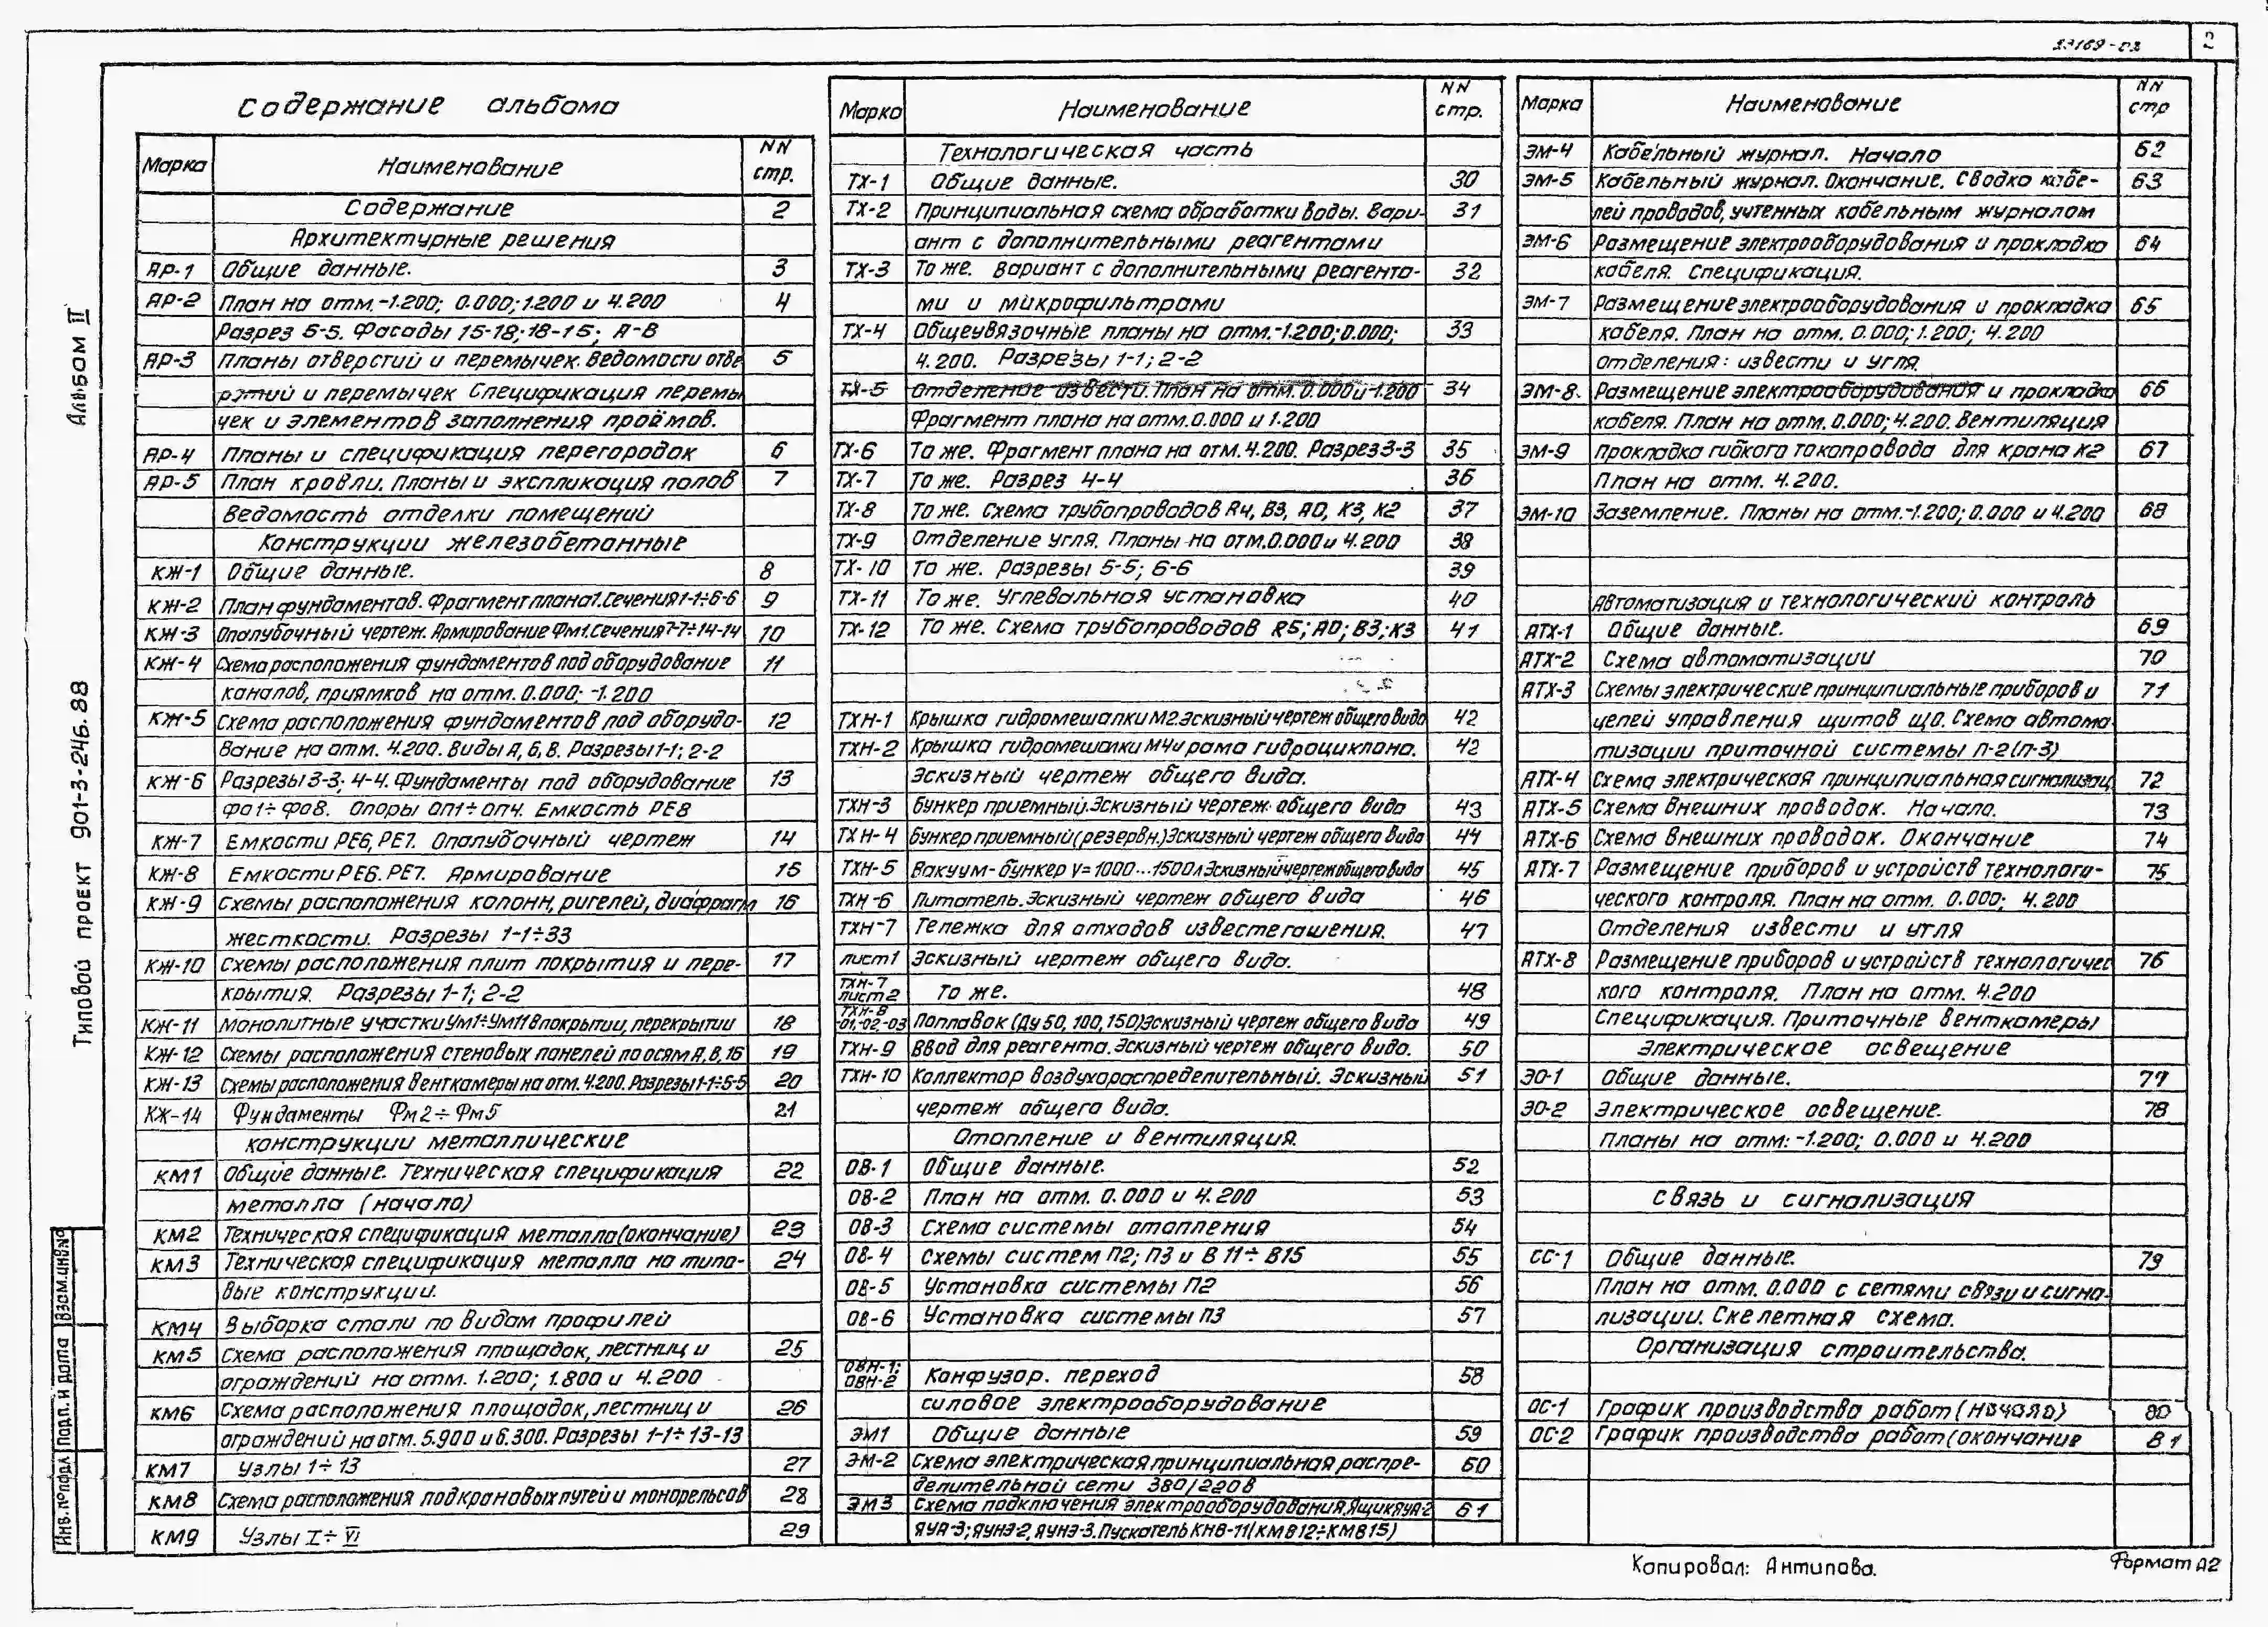 2
Альбом II
Типовой проект 901-3-246.88
Взам.инв.№
Подп. и дата
Инв.№подл
Содержание альбома
Марка Наименование NN стр.
Содержание 2
Архитектурные решения
АР-1 Общие данные. 3
АР-2 План на отм.-1.200; 0.000; 1.200 и 4.200 4
Разрез 5-5. Фасады 15-18; 18-15; А-В
АР-3 Планы отверстий и перемычек. Ведомости отве 5
рэтий и перемычек Спецификация перемы
чек и элементов заполнения проёмов.
АР-4 Планы и спецификация перегородок 6
АР-5 План кровли. Планы и экспликация полов 7
Ведомость отделки помещений
Конструкции железобетонные
КЖ-1 Общие данные. 8
КЖ-2 План фундаментов. Фрагмент плана1. Сечения1-1÷6-6 9
КЖ-3 Опалубочный чертеж. Армирование Фм1. Сечения7-7÷14-14 10
КЖ-4 Схема расположения фундаментов под оборудование 11
каналов, приямков на отм. 0.000; -1.200
КЖ-5 Схема расположения фундаментов под оборудо- 12
вание на отм. 4.200. Виды А, Б, В. Разрезы 1-1; 2-2
КЖ-6 Разрезы 3-3; 4-4. Фундаменты под оборудование 13
фо1÷фо8. Опоры оп1÷оп4. Емкость РЕ8
КЖ-7 Емкости РЕ6, РЕ7. Опалубочный чертеж 14
КЖ-8 Емкости РЕ6. РЕ7. Армирование 15
КЖ-9 Схемы расположения колонн, ригелей, диафрагм 16
жесткости. Разрезы 1-1÷33
КЖ-10 Схемы расположения плит покрытия и пере- 17
крытия. Разрезы 1-1; 2-2
КЖ-11 Монолитные участки Ум1÷Ум11 в покрытии, перекрытии 18
КЖ-12 Схемы расположения стеновых панелей по осям А, В, 15 19
КЖ-13 Схемы расположения венткамеры на отм. 4.200. Разрезы 1-1÷5-5 20
КЖ-14 Фундаменты Фм2÷Фм5 21
конструкции металлические
КМ1 Общие данные. Техническая спецификация 22
металла (начало)
КМ2 Техническая спецификация металла(окончание) 23
КМ3 Техническая спецификация металла на типо- 24
вые конструкции.
КМ4 Выборка стали по видам профилей
КМ5 Схема расположения площадок, лестниц и 25
ограждений на отм. 1.200; 1.800 и 4.200
КМ6 Схема расположения площадок, лестниц и 26
ограждений на отм. 5.900 и 6.300. Разрезы 1-1÷13-13
КМ7 Узлы 1÷13 27
КМ8 Схема расположения подкрановых путей и монорельсов 28
КМ9 Узлы I÷VI 29
Марка Наименование NN стр.
Технологическая часть
ТХ-1 Общие данные. 30
ТХ-2 Принципиальная схема обработки воды. Вари- 31
ант с дополнительными реагентами
ТХ-3 То же. Вариант с дополнительными реагента- 32
ми и микрофильтрами
ТХ-4 Общеувязочные планы на отм.-1.200; 0.000; 33
4.200. Разрезы 1-1; 2-2
ТХ-5 Отделение извести. План на отм. 0.000 и -1.200 34
Фрагмент плана на отм. 0.000 и 1.200
ТХ-6 То же. Фрагмент плана на отм. 4.200. Разрез 3-3 35
ТХ-7 То же. Разрез 4-4 36
ТХ-8 То же. Схема трубопроводов R4, В3, А0, К3, К2 37
ТХ-9 Отделение угля. Планы на отм.0.000 и 4.200 38
ТХ-10 То же. Разрезы 5-5; 6-6 39
ТХ-11 То же. Углевальная установка 40
ТХ-12 То же. Схема трубопроводов R5; А0; В3; К3 41
ТХН-1 Крышка гидромешалки М2. Эскизный чертеж общего вида 42
ТХН-2 Крышка гидромешалки М4 и рама гидроциклона. 42
Эскизный чертеж общего вида.
ТХН-3 Бункер приемный. Эскизный чертеж общего вида 43
ТХН-4 Бункер приемный(резервн.) Эскизный чертеж общего вида 44
ТХН-5 Вакуум-бункер V=1000...1500л Эскизный чертеж общего вида 45
ТХН-6 Питатель. Эскизный чертеж общего вида 46
ТХН-7 Тележка для отходов известегашения. 47
лист1 Эскизный чертеж общего вида.
ТХН-7 лист2 То же. 48
ТХН-8 -01,-02,-03 Поплавок (Ду 50, 100, 150) Эскизный чертеж общего вида 49
ТХН-9 Ввод для реагента. Эскизный чертеж общего вида. 50
ТХН-10 Коллектор воздухораспределительный. Эскизный 51
чертеж общего вида.
Отопление и вентиляция.
ОВ-1 Общие данные. 52
ОВ-2 План на отм. 0.000 и 4.200 53
ОВ-3 Схема системы отопления 54
ОВ-4 Схемы систем П2; П3 и В 11÷В15 55
ОВ-5 Установка системы П2 56
ОВ-6 Установка системы П3 57
ОВН-1; ОВН-2 Конфузор. переход 58
силовое электрооборудование
ЭМ1 Общие данные 59
ЭМ-2 Схема электрическая принципиальная распре- 60
делительной сети 380/220в
ЭМ3 Схема подключения электрооборудования, Ящик ЯУА-2 61
ЯУА-3; ЯУНЭ-2, ЯУНЭ-3. Пускатель КНВ-11(КМВ12÷КМВ15)
Марка Наименование NN стр
ЭМ-4 Кабельный журнал. Начало 62
ЭМ-5 Кабельный журнал. Окончание. Сводка кабе- 63
лей проводов, учтенных кабельным журналом
ЭМ-6 Размещение электрооборудования и прокладка 64
кабеля. Спецификация.
ЭМ-7 Размещение электрооборудования и прокладка 65
кабеля. План на отм. 0.000; 1.200; 4.200
отделения: извести и угля.
ЭМ-8. Размещение электрооборудования и прокладка 66
кабеля. План на отм. 0.000; 4.200. Вентиляция
ЭМ-9 Прокладка гибкого токопровода для крана К2 67
План на отм. 4.200.
ЭМ-10 Заземление. Планы на отм.-1.200; 0.000 и 4.200 68
Автоматизация и технологический контроль
АТХ-1 Общие данные. 69
АТХ-2 Схема автоматизации 70
АТХ-3 Схемы электрические принципиальные приборов и 71
цепей управления щитов що. Схема автома
тизации приточной системы П-2(П-3)
АТХ-4 Схема электрическая принципиальная сигнализац. 72
АТХ-5 Схема внешних проводок. Начало. 73
АТХ-6 Схема внешних проводок. Окончание 74
АТХ-7 Размещение приборов и устройств технологи- 75
ческого контроля. План на отм. 0.000; 4.200
Отделения извести и угля
АТХ-8 Размещение приборов и устройств технологичес 76
кого контроля. План на отм. 4.200
Спецификация. Приточные венткамеры
Электрическое освещение
ЭО-1 Общие данные. 77
ЭО-2 Электрическое освещение. 78
Планы на отм: -1.200; 0.000 и 4.200
связь и сигнализация
СС-1 Общие данные. 79
План на отм. 0.000 с сетями связи и сигна-
лизации. Скелетная схема.
Организация строительства.
ОС-1 График производства работ (начало) 80
ОС-2 График производства работ (окончание 81
Копировал: Антипова.
Формат А2